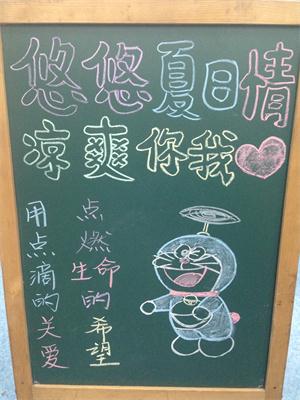 悠悠夏日情
凉爽你我
用点滴的关爱
点燃生命的希望